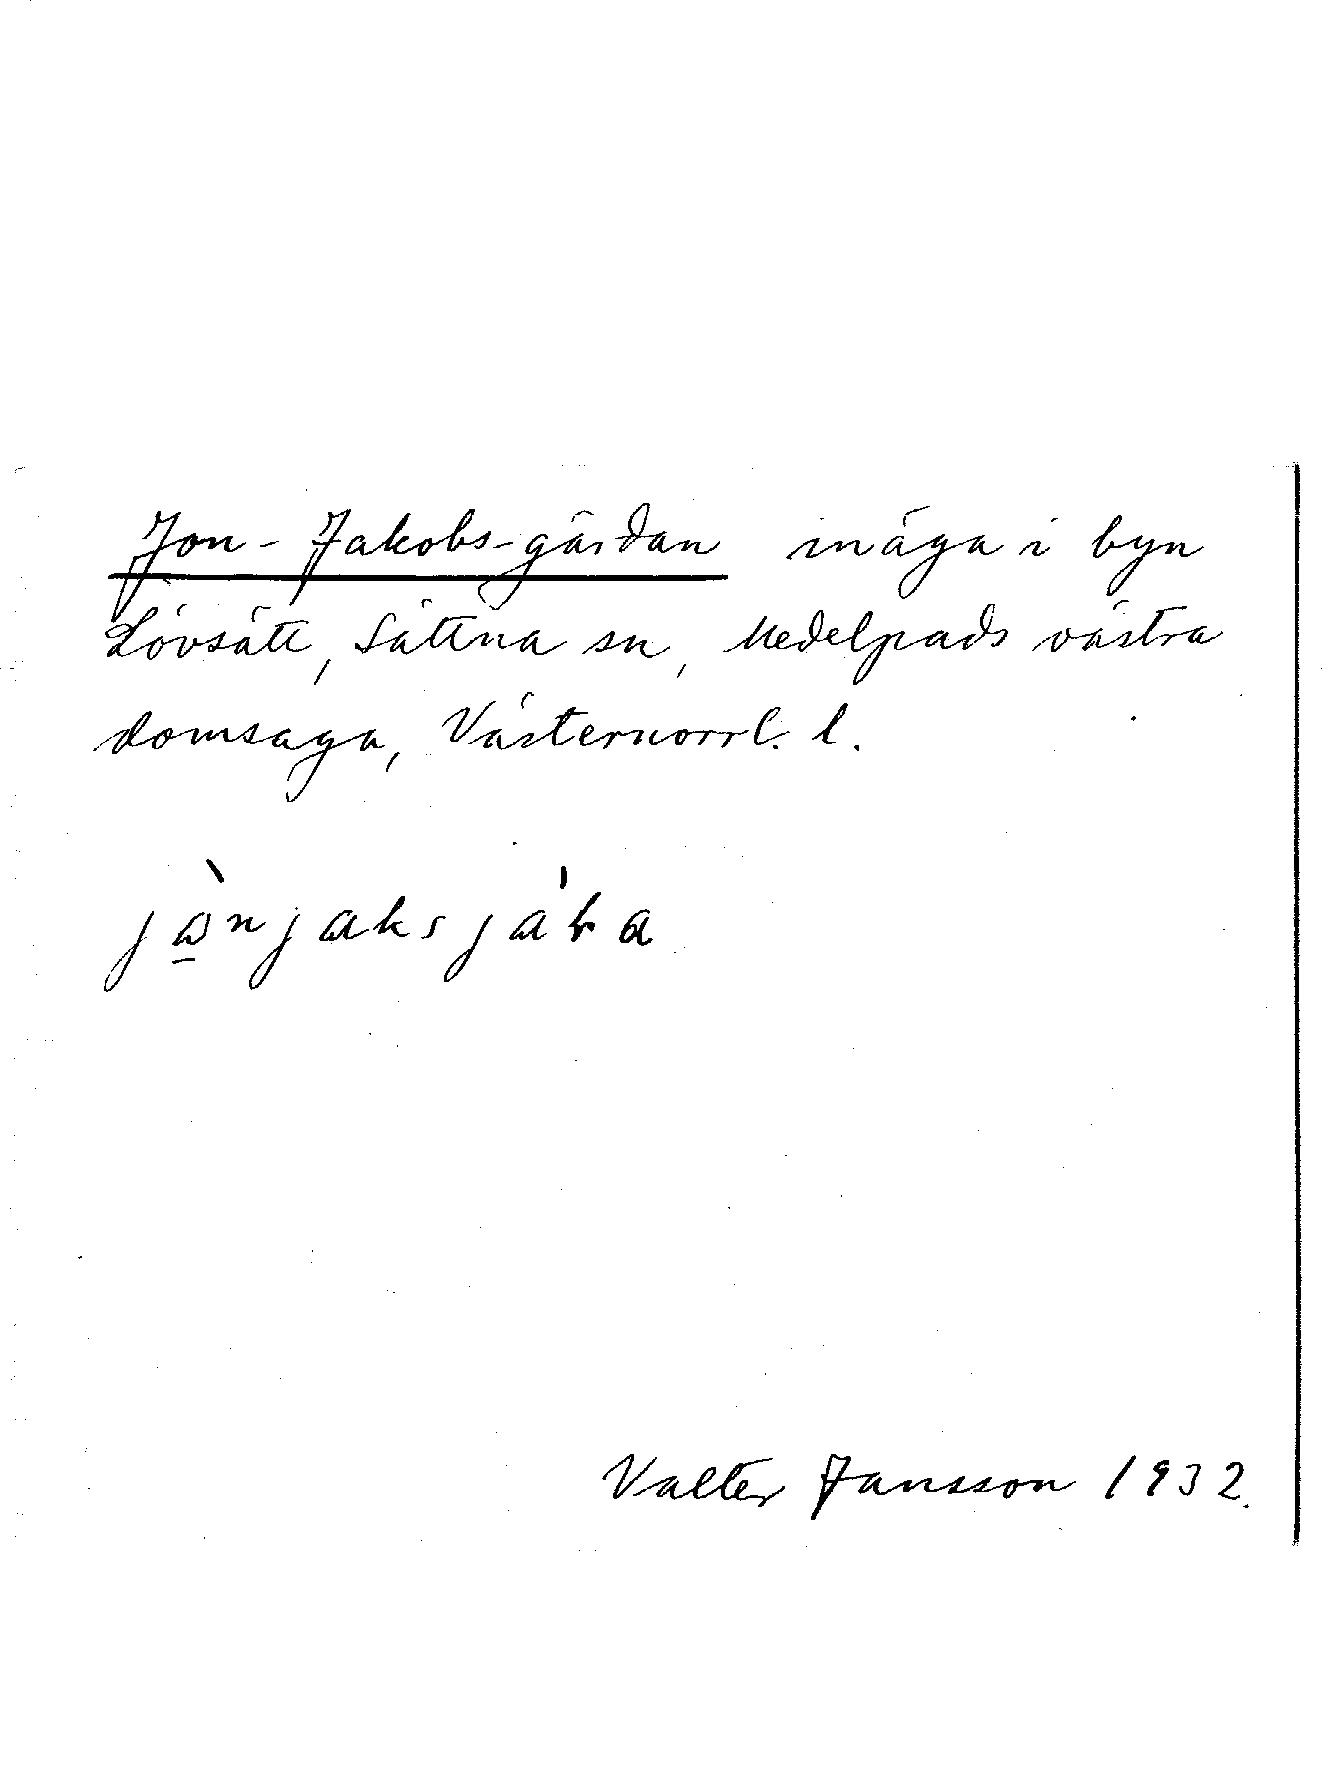 Jon-Jakobs-gärdan inäga i byn
Lövsätt, Sättna sn, Medelpads västra
domsaga, Västernorrl. l.
Valter Jansson 1932.